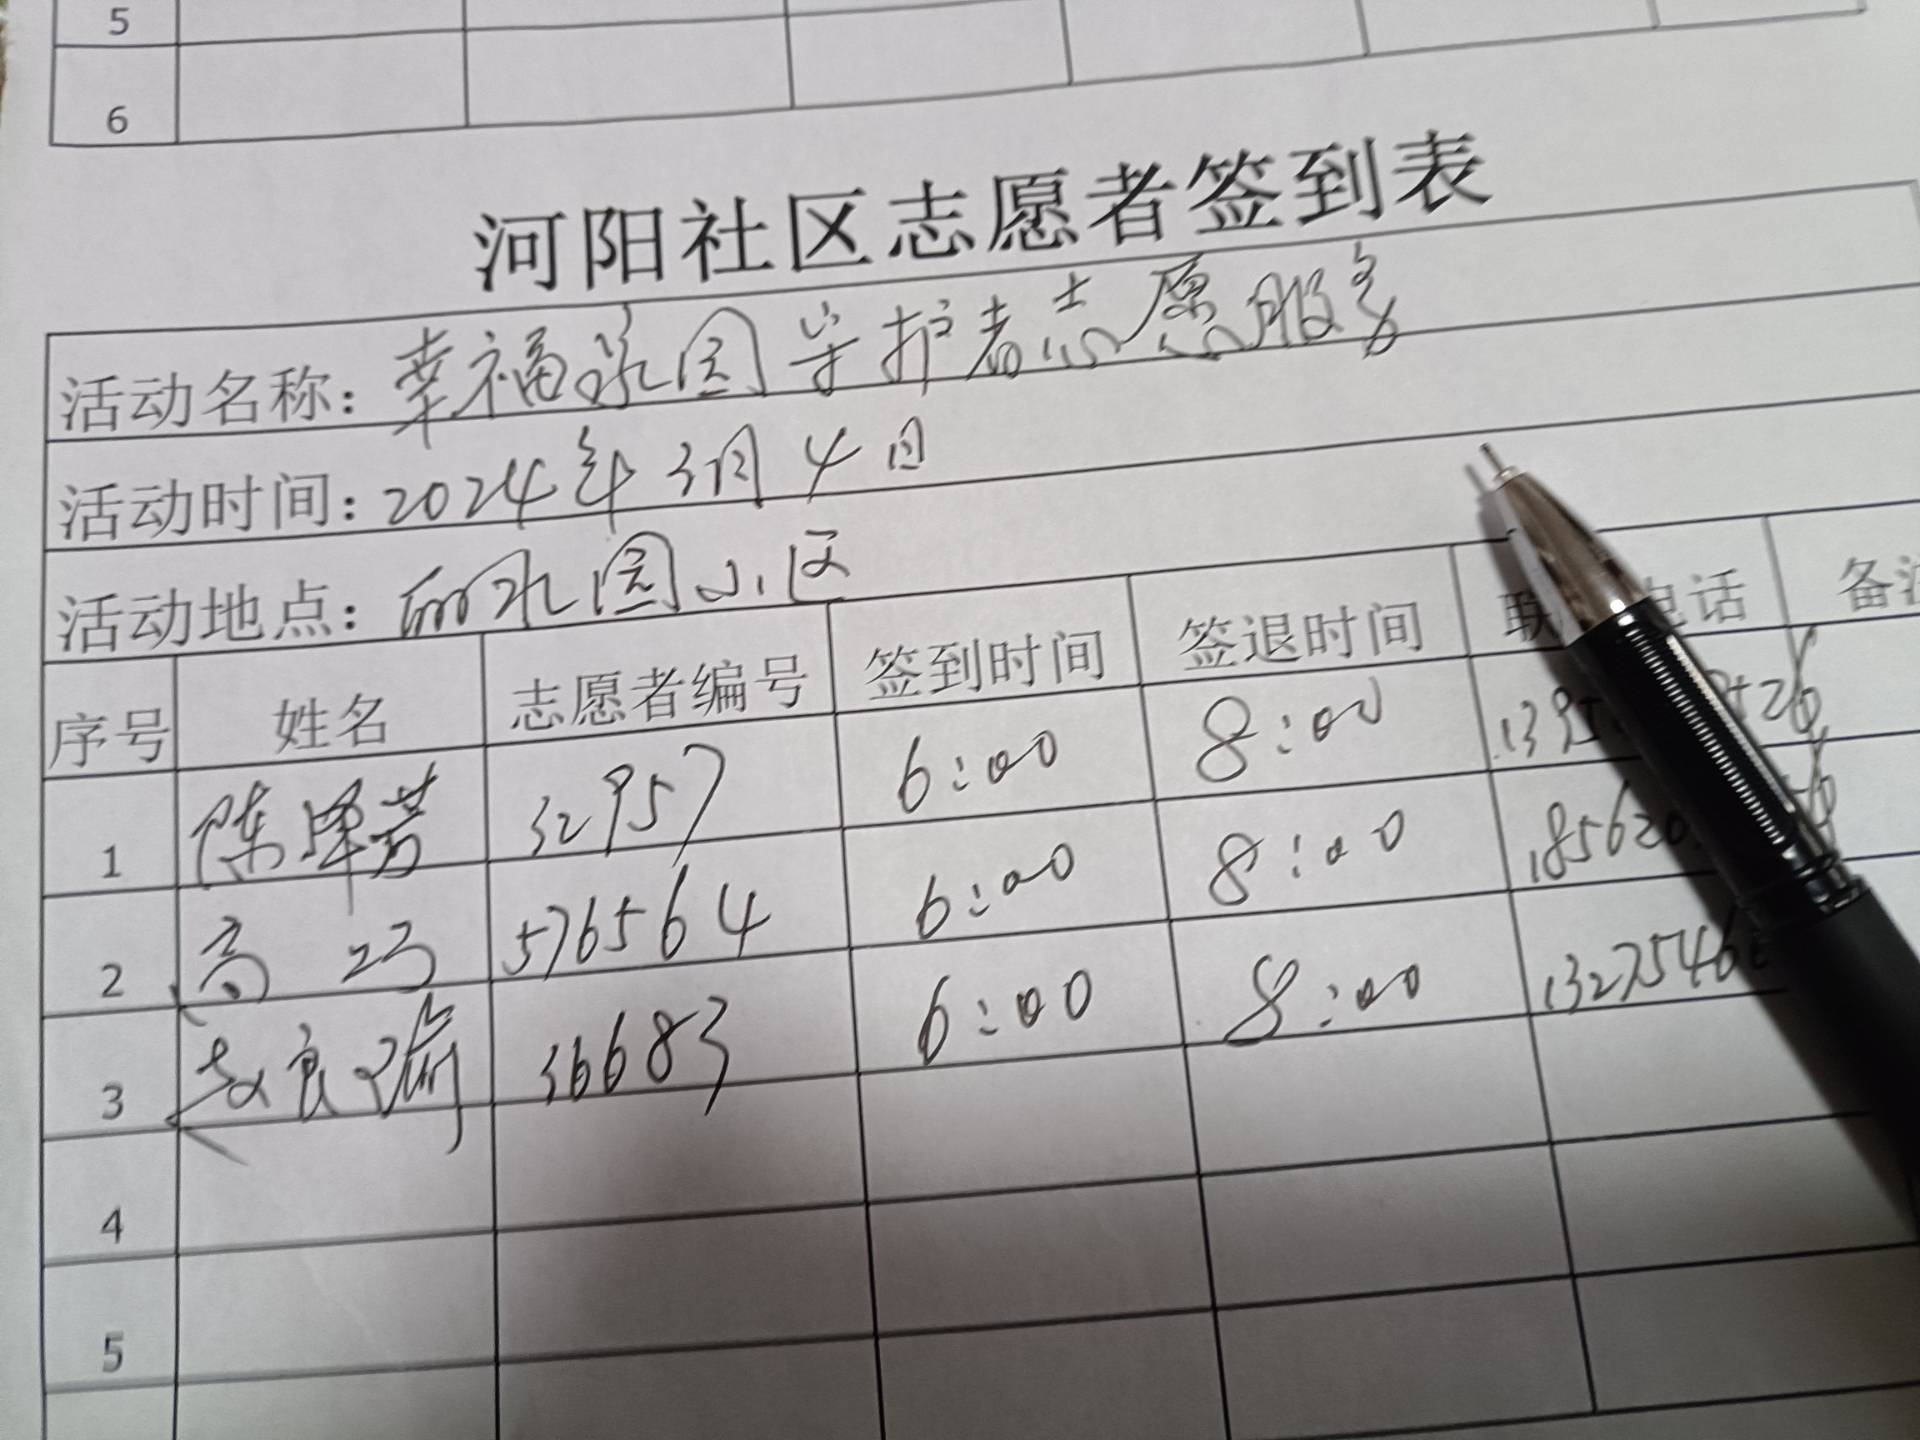 5
6
河阳社区志愿者签到表
活动名称：幸福家园守护者志愿服务
活动时间：2024年3月4日
活动地点：丽水园小区
序号 姓名 志愿者编号 签到时间 签退时间 联 电话 备注
1 陈 芳 32957 6:00 8:00
2 高巧 576564 6:00 8:00
3 良瑜 36683 6:00 8:00
4
5